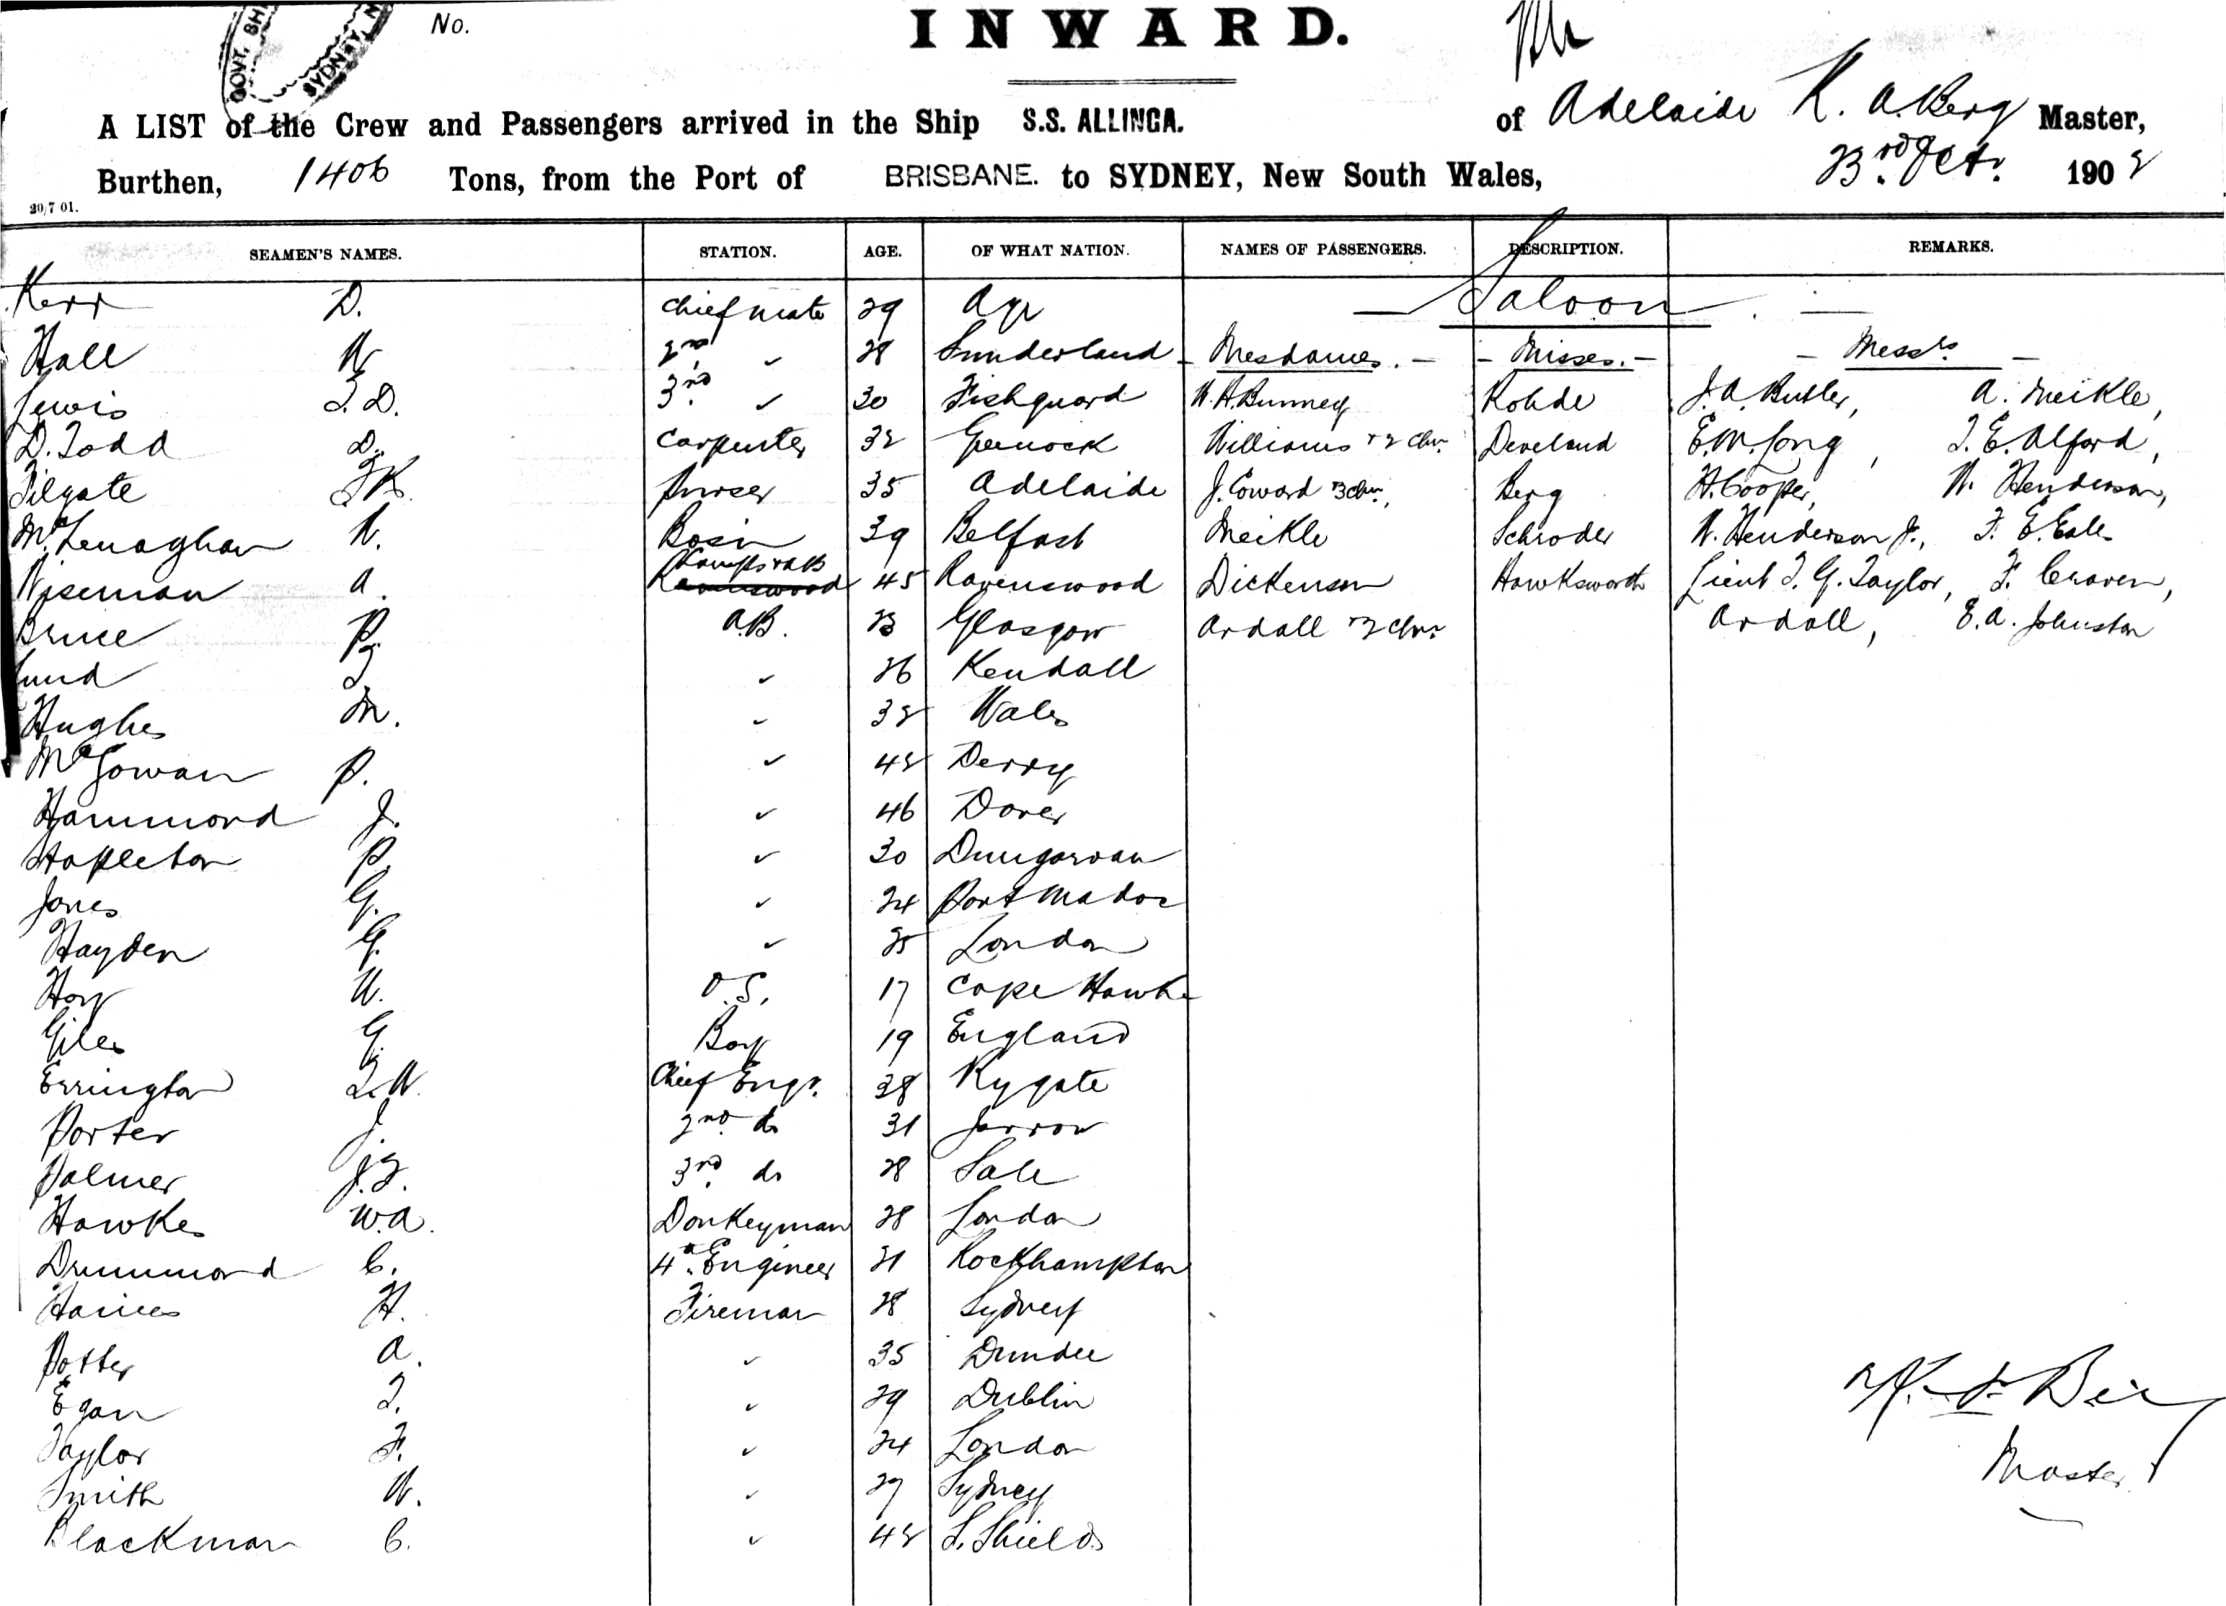 GOVT. SHI
SYDNEY, N
No.
INWARD.
A LIST of the Crew and Passengers arrived in the Ship S.S. ALLINGA. of Adelaide K. A. Berg Master,
Burthen, 1406 Tons, from the Port of BRISBANE. to SYDNEY, New South Wales, 23rd Octr. 1902
20/7 01.
SEAMEN'S NAMES. STATION. AGE. OF WHAT NATION. NAMES OF PASSENGERS. DESCRIPTION. REMARKS.
Kerr D. Chief mate 29 Ayr — Saloon. —
Hall W 2nd ✓ 28 Sunderland – Mesdames. – – Misses. – – Messrs –
Lewis T. D. 3rd ✓ 30 Fishguard W. H. Bunney Rohde J. A. Butler, A. Meikle,
D. Todd D. Carpenter 32 Greenock Williams & 2 chn. Develand E. W. Long, T. E. Alford,
Filgate F K. Purser 35 Adelaide J. Coward & 3 chn., Berg H. Cooper, W. Henderson,
McLenaghan W. Bosn 39 Belfast Meikle Schroder W. Henderson Jr., F. E. Eale
Wiseman A. Lamps & AB 45 Ravenswood Dickenson Hawksworth Lieut T. G. Taylor, F. Craven,
Bruce P. A.B. 23 Glasgow Ardall & 2 chn. Ardall, E. A. Johnston
Lund ✓ 26 Kendall
Hughes M. ✓ 32 Wales
McGowan P. ✓ 42 Derry
Hammond J. ✓ 46 Dover
Stapleton P. ✓ 30 Dungarvan
Jones G. ✓ 24 Port Madoc
Hayden G. ✓ 25 London
Hoy W. O.S. 17 Cape Hawke
Giles G. Boy 19 England
Errington T. W. Chief Engr. 38 Rygate
Porter J. 2nd do 31 Jarrow
Palmer J. T. 3rd do 28 Sale
Hawkes W. A. Donkeyman 28 London
Drummond C. 4th Engineer 21 Rockhampton
Haines H. Fireman 28 Sydney
Potter A. ✓ 35 Dundee
Egan T. ✓ 29 Dublin
Taylor F. ✓ 24 London
Smith W. ✓ 27 Sydney
Blackman C. ✓ 42 S. Shields
K. A. Berg
Master